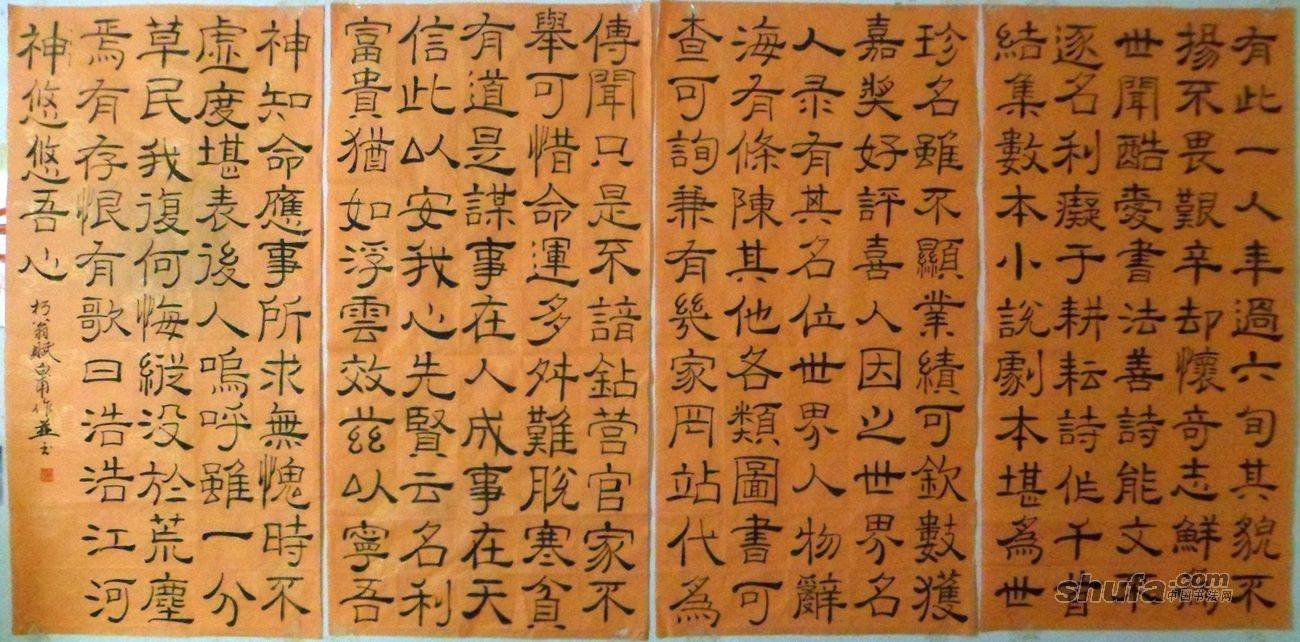 有此一人年過六旬其貌不
揚不畏艱辛却懷奇志鮮
世聞酷愛書法善詩能文不
逐名利癡于耕耘詩作千首
結集數本小說劇本堪為世
珍名雖不顯業績可欽數獲
嘉獎好評喜人因之世界名
人录有其名位世界人物辭
海有條陳其他各類圖書可
查可詢兼有幾家网站代為
傳聞只是不諳鉆营官家不
舉可惜命運多舛難脫寒貧
有道是謀事在人成事在天
信此以安我心先賢云名利
富貴猶如浮雲效茲以寧吾
神知命應事所求無愧時不
虛度堪表後人嗚呼雖一分
草民我復何悔縱没於荒塵
焉有存恨有歌曰浩浩江河
神悠悠吾心
朽翁
shufa.com
中国书法网